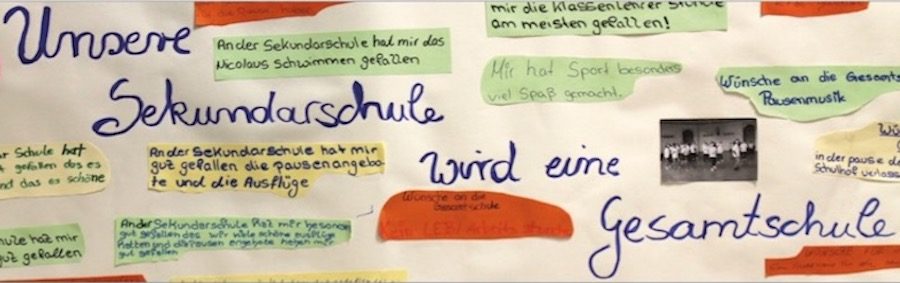 Unsere
Sekundarschule
wird eine
Gesamtschule
die Klassenlehrer Stunde
am meisten gefallen!
An der Sekundarschule hat mir das
Nicolaus schwimmen gefallen
Mir hat Sport besonders
viel Spaß gemacht.
Wünsche an die Gesamts
Pausenmusik
Schule hat
gefallen das es
nd das es schöne
An der Sekundarschule hat mir
gut gefallen die pausenangebo-
te und die Ausflüge
in der pause de
Schulhof verlass
Wünsche an die
Gesamtschule
Kein LEB/Arbeits
An der Sekundarschule hat mir besonde
gut gefallen das wir viele schöne ausflüge
hatten und die pausen angebote haben mir
gut gefallen
hat mir
gut gefallen